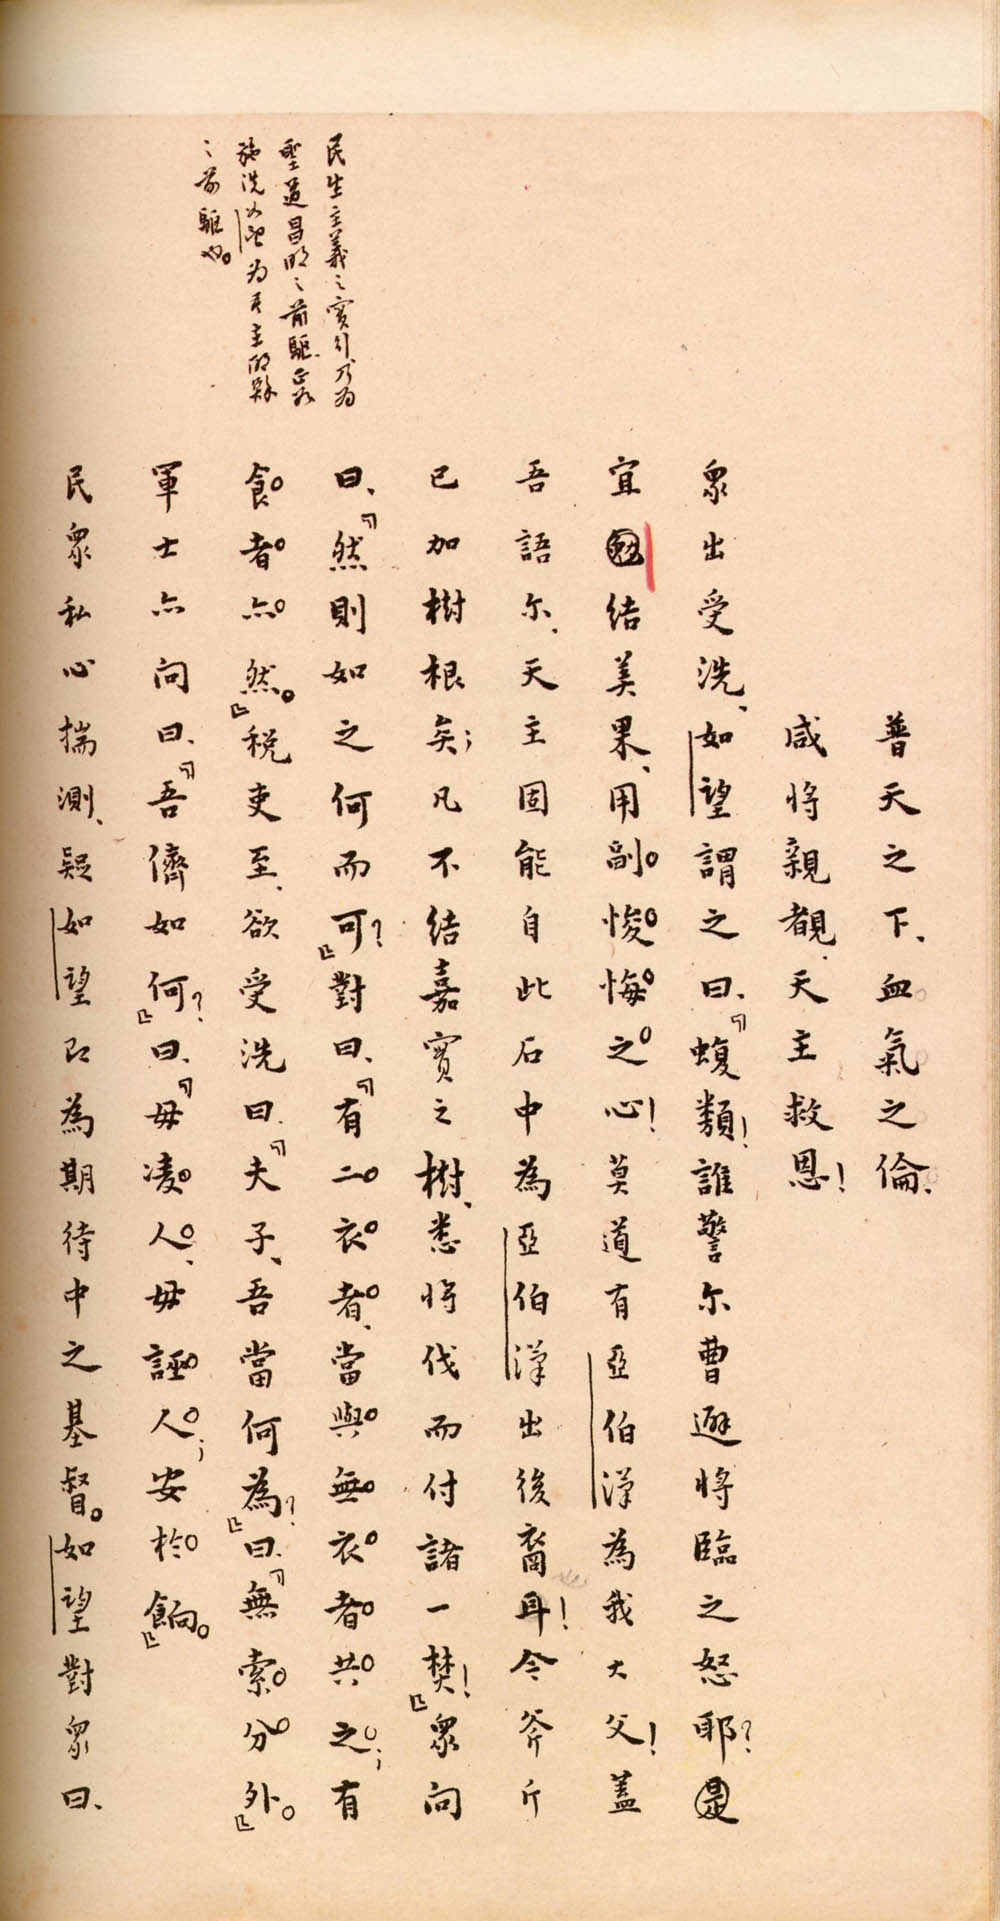 普天之下、血氣之倫、
咸將親覩、天主救恩!
眾出受洗、如望謂之曰、『蝮類!誰警尔曹避將臨之怒耶?是
宜勉結美果、用副悛悔之心!莫道有亞伯漢為我大父!蓋
吾語尔、天主固能自此石中為亞伯漢出後裔耳!今斧斤
已加樹根矣;凡不結嘉實之樹、悉將伐而付諸一焚!』眾問
曰、『然則如之何而可?』對曰、『有二衣者、當與無衣者共之;有
食者亦然。』稅吏至、欲受洗曰、『夫子、吾當何為?』曰、『無索分外。』
軍士亦問曰、『吾儕如何?』曰、『毋凌人、毋誣人;安於餉。』
民眾私心揣測、疑如望即為期待中之基督。如望對眾曰、
民生主義之實行、乃為
聖道昌明之前驅、正如
施洗如望為吾主耶穌
之前驅也。